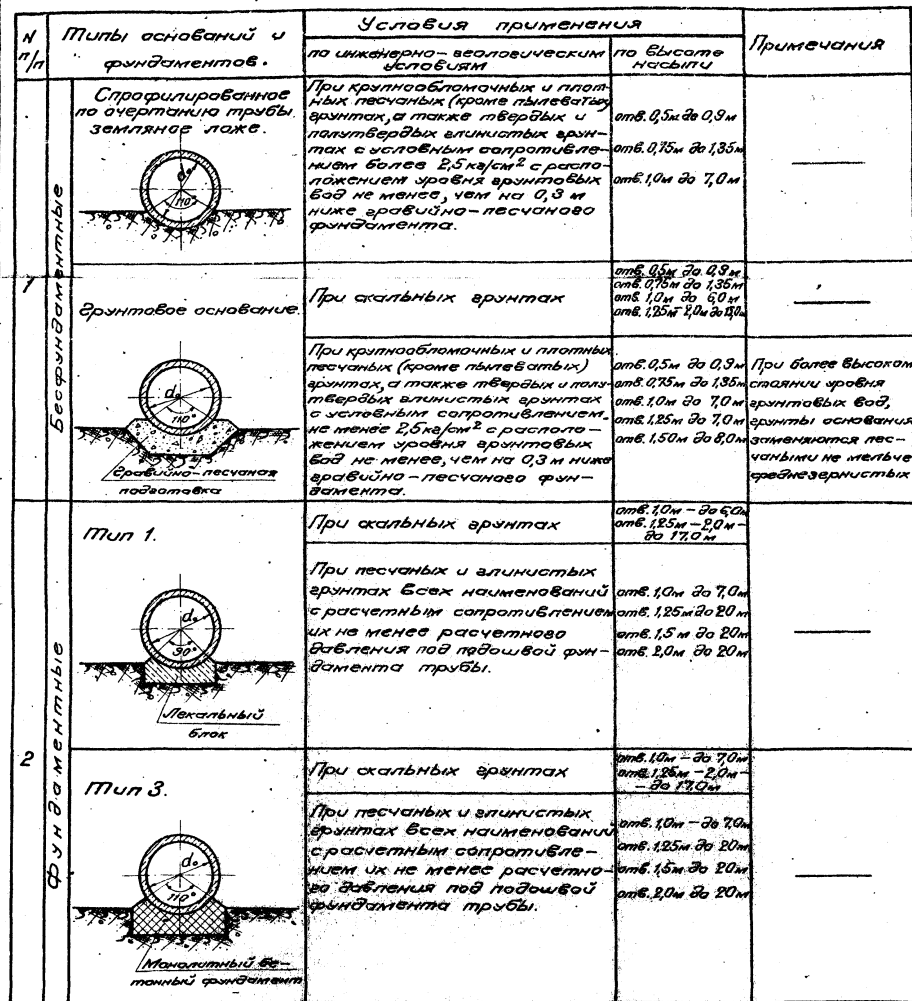 N п/п
Типы оснований и
фундаментов.
Условия применения
по инженерно-геологическим
условиям
по высоте
насыпи
Примечания
1
Бесфундаментные
Спрофилированное
по очертанию трубы
земляное ложе.
d₀
110°
При крупнообломочных и плот-
ных песчаных (кроме пылеватых)
грунтах, а также твердых и
полутвердых глинистых грун-
тах с условным сопротивле-
нием более 2,5 кг/см² с распо-
ложением уровня грунтовых
вод не менее, чем на 0,3 м
ниже гравийно-песчаного
фундамента.
отв. 0,5м до 0,9м
отв. 0,75м до 1,35м
отв. 1,0м до 7,0м
Грунтовое основание.
При скальных грунтах
отв. 0,5м до 0,9м
отв. 0,75м до 1,35м
отв. 1,0м до 6,0м
отв. 1,25м-2,0м до
d₀
110°
Гравийно-песчаная
подготовка
При крупнообломочных и плотных
песчаных (кроме пылеватых)
грунтах, а также твердых и полу
твердых глинистых грунтах
с условным сопротивлением
не менее 2,5кг/см² с располо-
жением уровня грунтовых
вод не менее, чем на 0,3м ниже
гравийно-песчаного фун-
дамента.
отв. 0,5м до 0,9м
отв. 0,75м до 1,35м
отв. 1,0м до 7,0м
отв. 1,25м до 7,0м
отв. 1,50м до 8,0м
При более высоком
стоянии уровня
грунтовых вод,
грунты основания
заменяются пес-
чаными не мельче
среднезернистых
2
Фундаментные
Тип 1.
При скальных грунтах
отв. 1,0м - до 6,0м
отв. 1,25м - 2,0м -
до 17,0м
d₀
90°
Лекальный
блок
При песчаных и глинистых
грунтах всех наименований
с расчетным сопротивлением
их не менее расчетного
давления под подошвой фун-
дамента трубы.
отв. 1,0м до 7,0м
отв. 1,25м до 20м
отв. 1,5м до 20м
отв. 2,0м до 20м
Тип 3.
При скальных грунтах
отв. 1,0м - до 7,0м
отв. 1,25м - 2,0м -
- до 17,0м
d₀
110°
Монолитный бе-
тонный фундамент
При песчаных и глинистых
грунтах всех наименований
с расчетным сопротивле-
нием их не менее расчетно-
го давления под подошвой
фундамента трубы.
отв. 1,0м - до 7,0м
отв. 1,25м до 20м
отв. 1,5м до 20м
отв. 2,0м до 20м